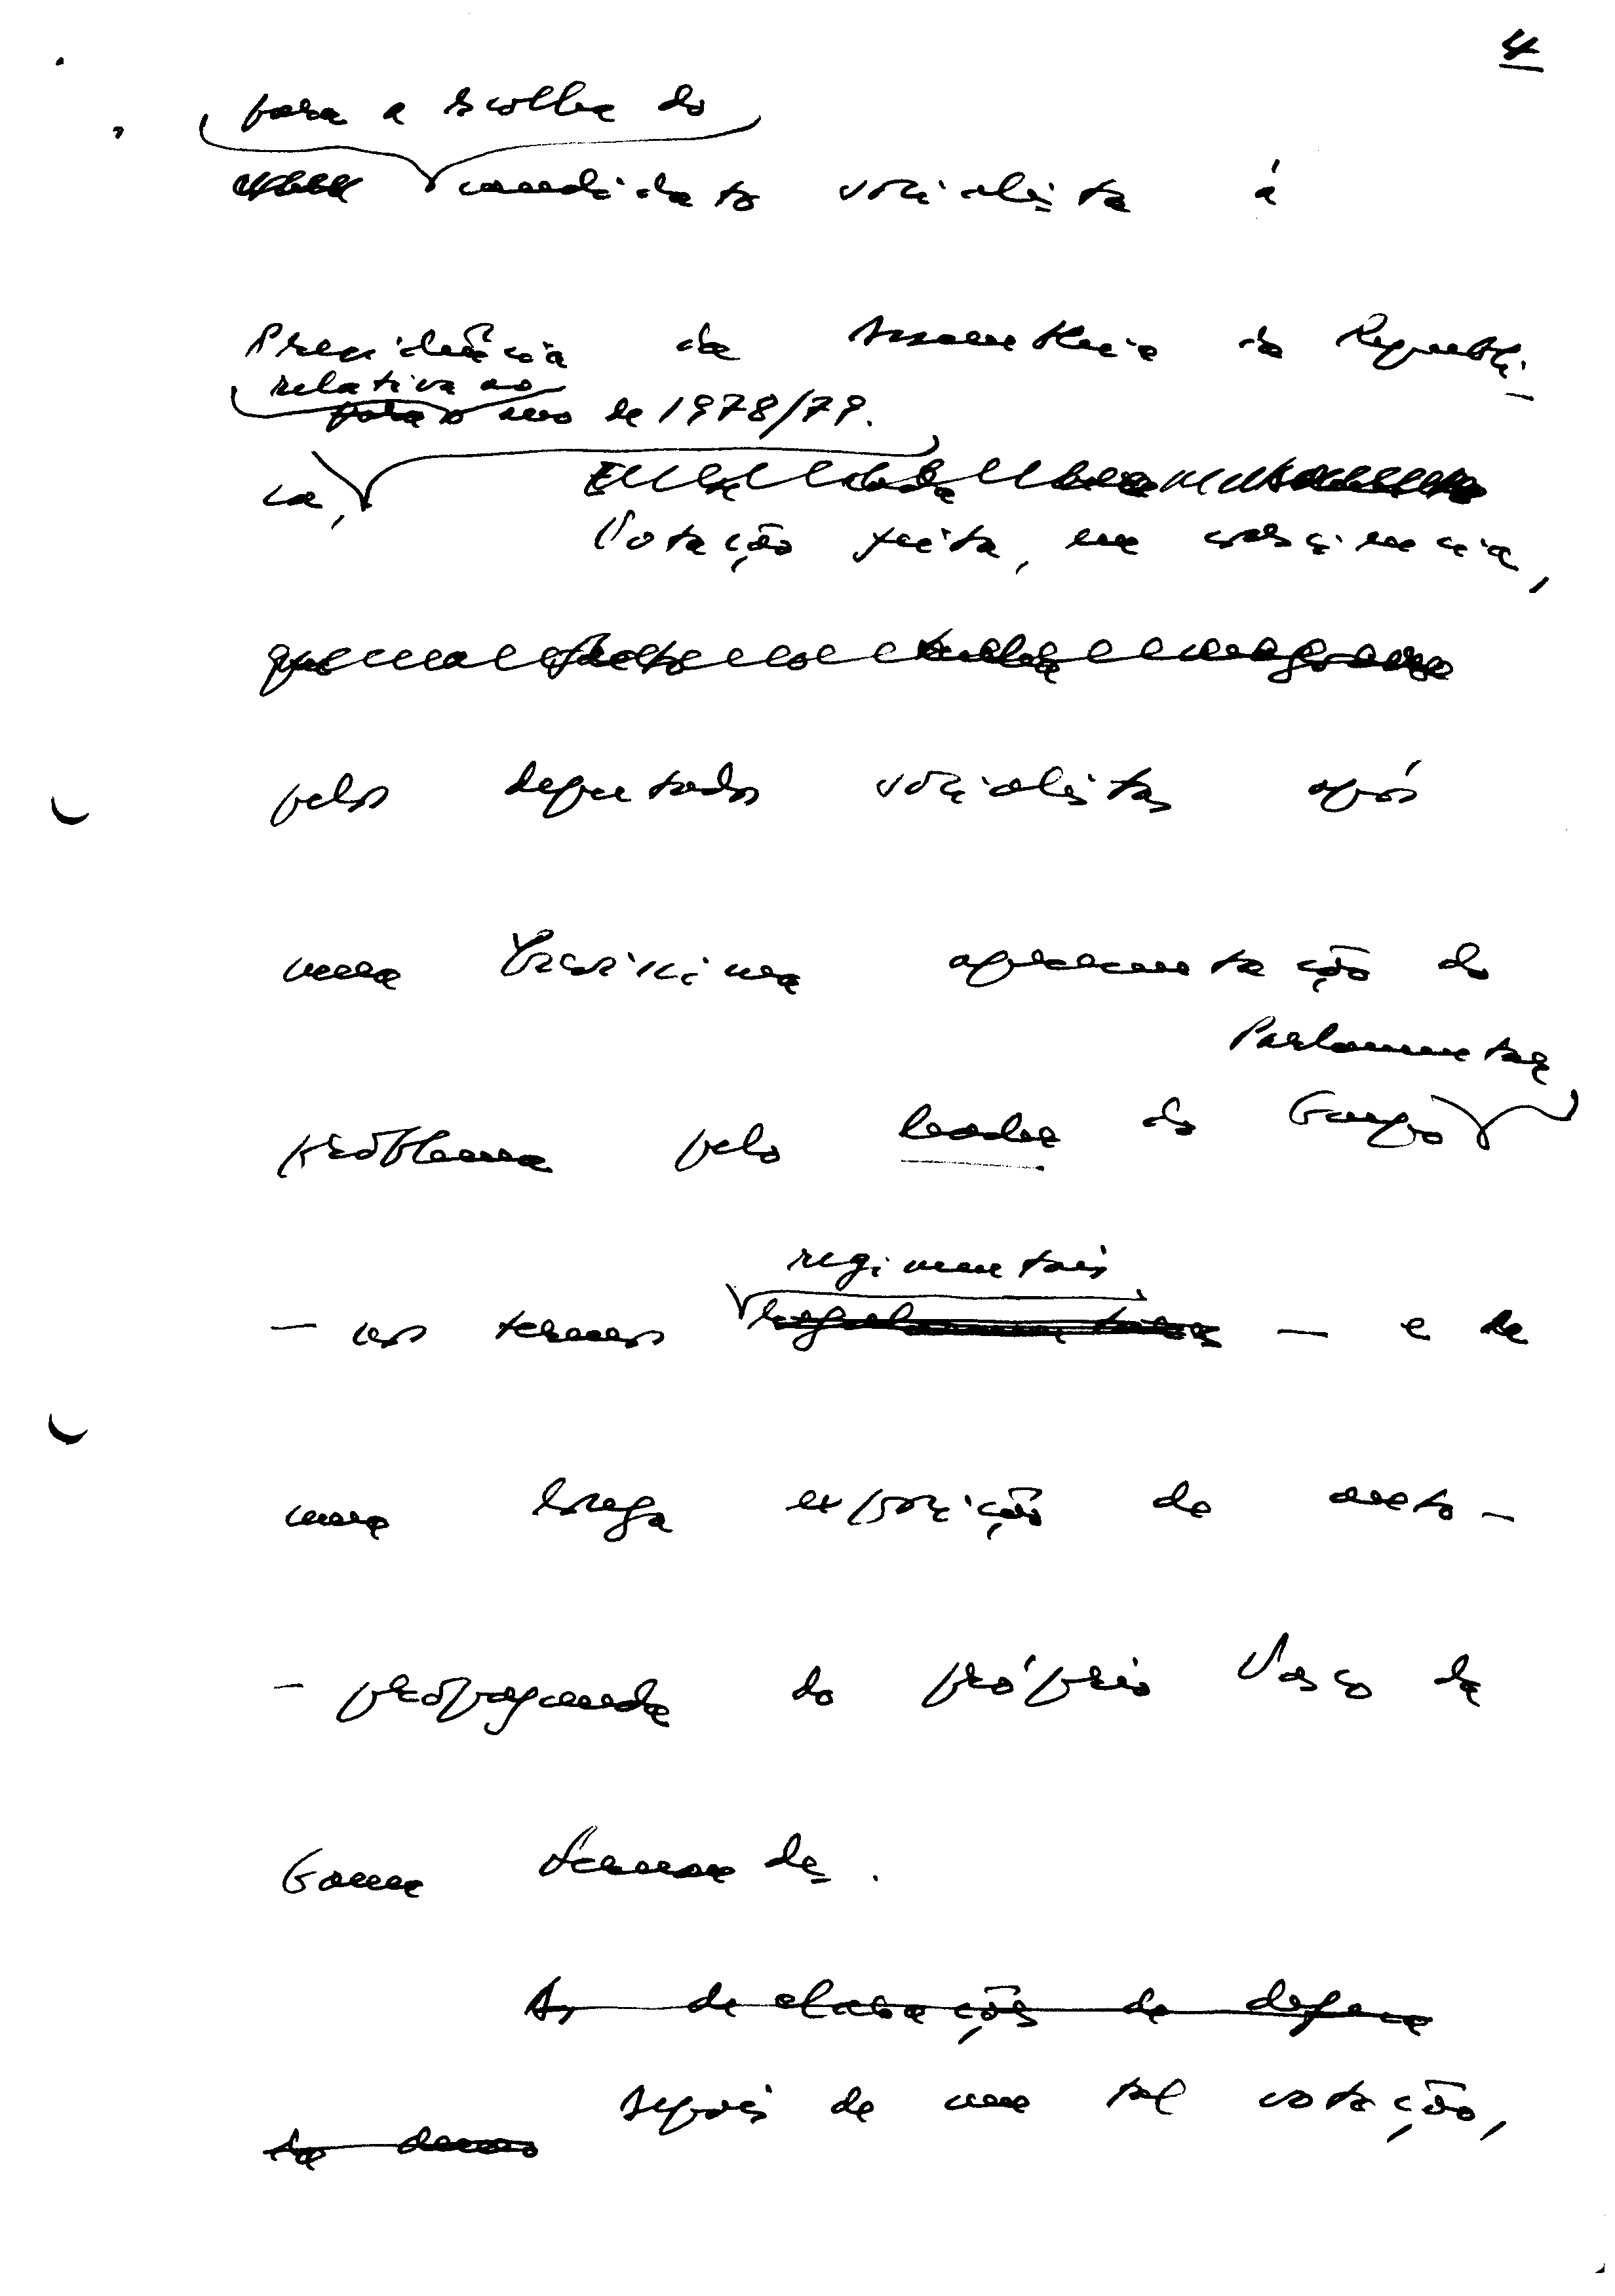 4
para a escolha do
candidato socialista à
Presidência da Assembleia da Repúbli-
relativa ao
para o ano de 1978/79.
ca,
Votação feita, em consciência,
pelos deputados socialistas após
uma brevíssima apresentação do
Parlamentar
problema pelo leader do Grupo
regimentais
— nos termos — e de
uma longa exposição de auto-
- propaganda do próprio Vasco da
Gama Fernandes.
As declarações de defesa
Depois de uma tal votação,